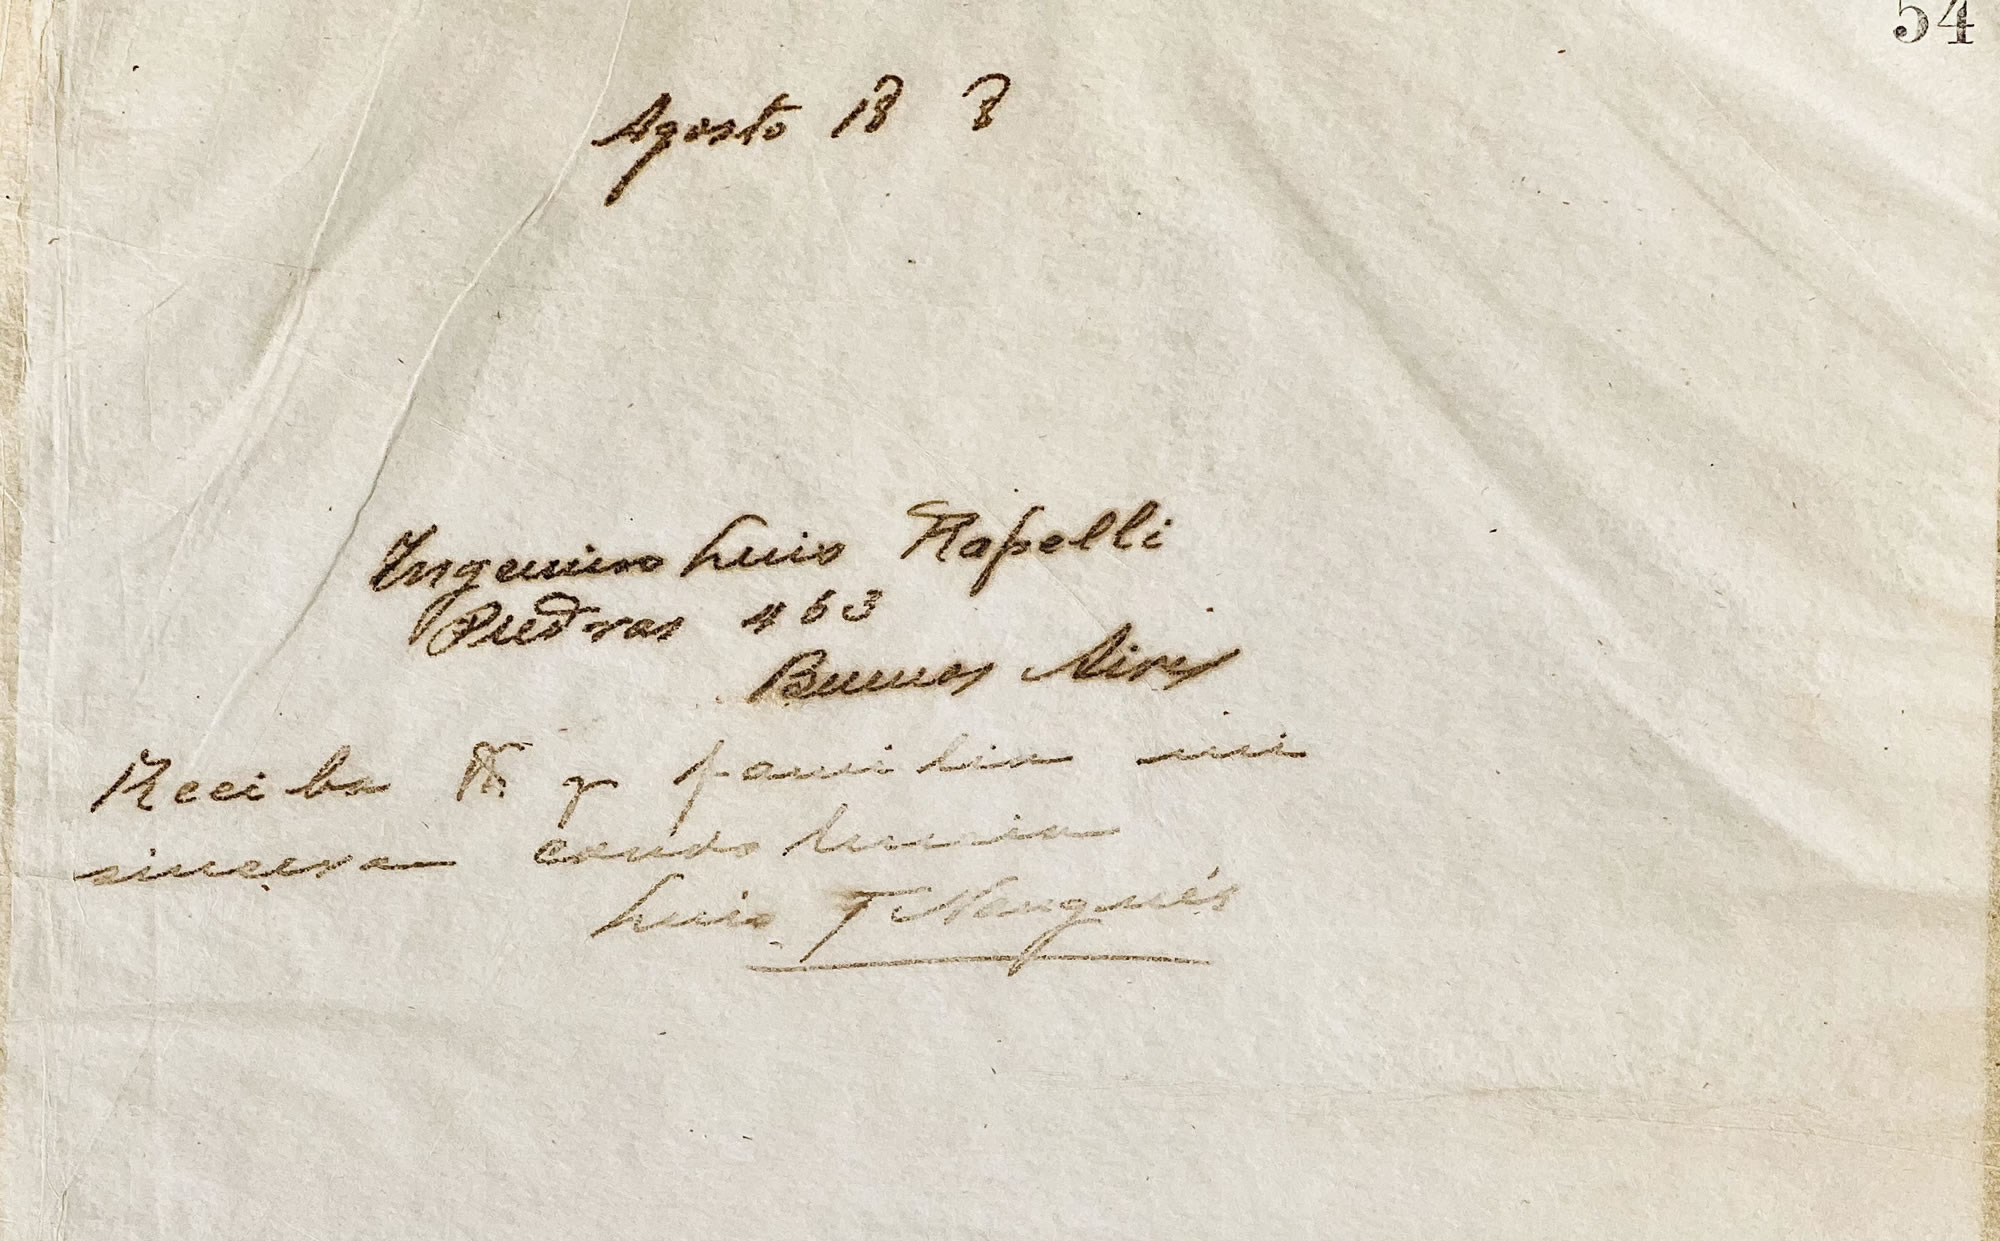 54
Agosto 18 8
Ingeniero Luis Rapelli
Piedras 463
Buenos Aires
Reciba Vd. y familia mi
sincera condolencia
Luis F Nougués